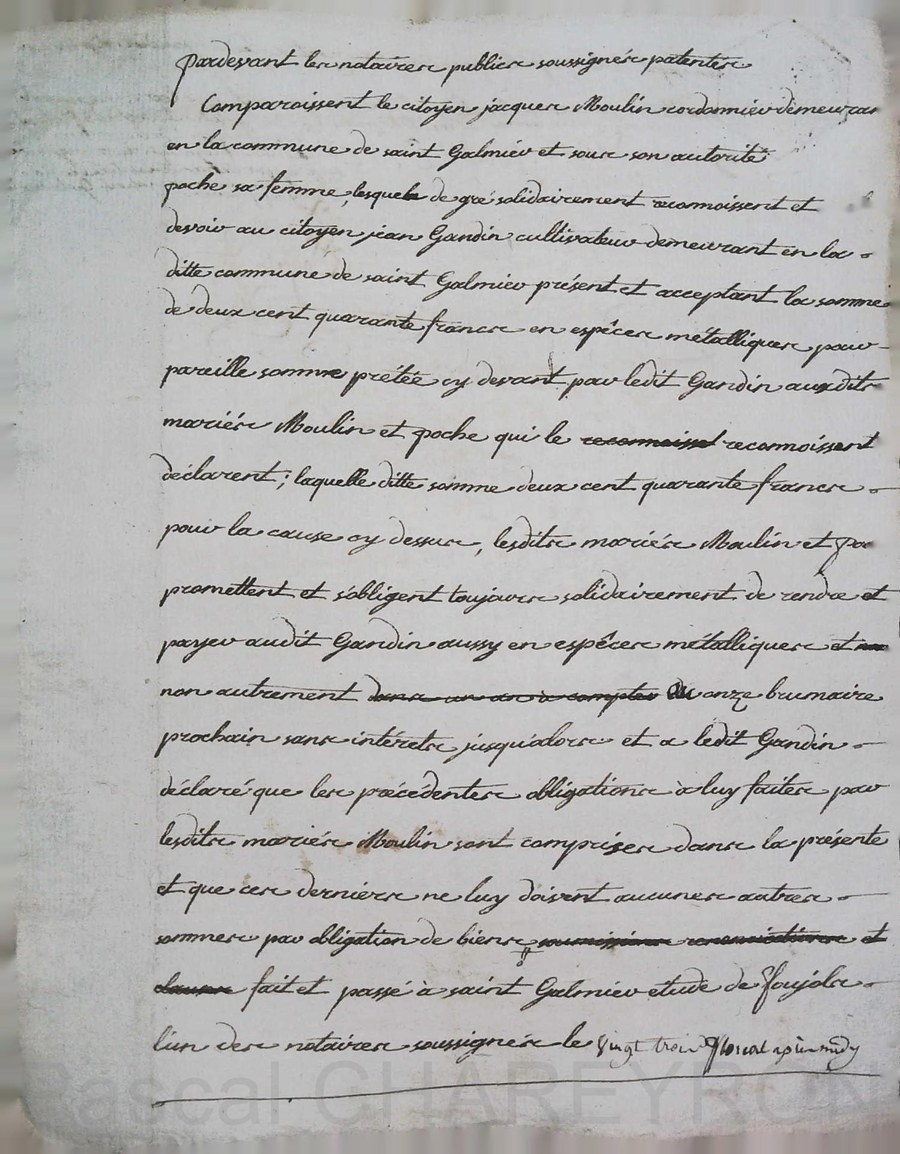 pardevant les notaires publics soussignés patentés
Comparoissent le citoyen jacques Moulin cordonnier demeuran
en la commune de saint Galmier et sous son autorité
poche sa femme, lesquels de gré solidairement reconnoissent et
devoir au citoyen jean Gandin cultivateur demeurant en la
ditte commune de saint Galmier présent et acceptant la somme
de deux cent quarante francs en espêces métalliques pour
pareille somme prétée cy devant par ledit Gandin auxdits
mariés Moulin et poche qui le reconnoissent reconnoissent
déclarent; laquelle ditte somme deux cent quarante francs
pour la cause cy dessus, lesdits mariés Moulin et po
promettent et s'obligent toujours solidairement de rendre et
payer audit Gandin aussy en espêces métalliques et
non autrement dans un an à compter du onze brumaire
prochain sans intérets jusqu'alors et a ledit Gandin
déclaré que les précédentes obligations à luy faites par
lesdits mariés Moulin sont comprises dans la présente
et que ces derniers ne luy doivent aucunes autres
sommes par obligation de biens soumissions renonciations et
clauses fait et passé à saint Galmier etude de Foujols
l'un des notaires soussignés le vingt trois floreal après midy
Pascal CHAREYRON